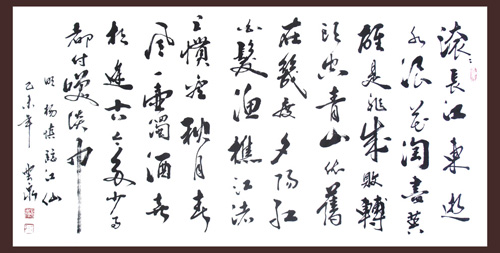 滚〻長江東逝
水浪花淘盡英
雄是非成敗轉
頭空青山依舊
在幾度夕陽紅
白髮漁樵江渚
上慣看秋月春
風一壺濁酒喜
相逢古今多少事
都付笑談中
明楊慎臨江仙
乙未年